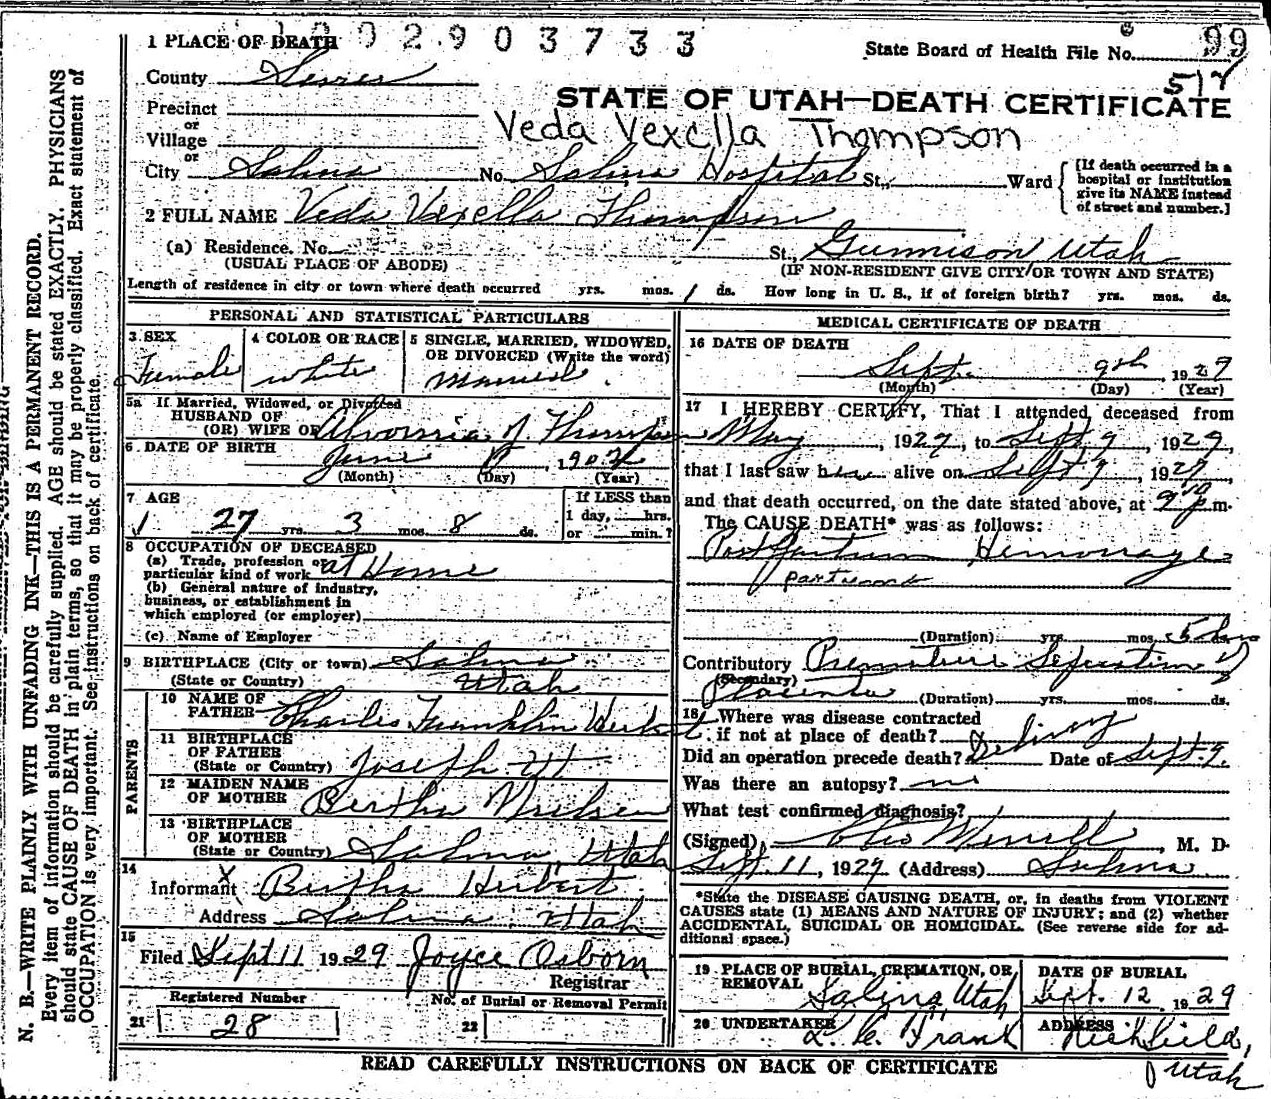 1 PLACE OF DEATH
1 0 0 2 9 0 3 7 3 3
State Board of Health File No. 99
County Sevier
517
STATE OF UTAH—DEATH CERTIFICATE
Precinct
or
Village
Veda Vexella Thompson
or
City Salina No. Salina Hospital St., Ward
[If death occurred in a hospital or institution give its NAME instead of street and number.]
2 FULL NAME Veda Vexella Thompson
(a) Residence. No. St., Gunnison Utah
(USUAL PLACE OF ABODE) (IF NON-RESIDENT GIVE CITY OR TOWN AND STATE)
Length of residence in city or town where death occurred yrs. mos. 1 ds. How long in U. S., if of foreign birth? yrs. mos. ds.
PERSONAL AND STATISTICAL PARTICULARS
3 SEX Female
4 COLOR OR RACE white
5 SINGLE, MARRIED, WIDOWED, OR DIVORCED (Write the word) Married
5a If Married, Widowed, or Divorced
HUSBAND OF
(OR) WIFE OF J. Thompson
6 DATE OF BIRTH June 1, 1902
(Month) (Day) (Year)
7 AGE
27 yrs. 3 mos. 8 ds.
If LESS than
1 day, hrs.
or min.?
8 OCCUPATION OF DECEASED
(a) Trade, profession or
particular kind of work at Home
(b) General nature of industry,
business, or establishment in
which employed (or employer)
(c) Name of Employer
9 BIRTHPLACE (City or town) Salina
(State or Country) Utah
PARENTS
10 NAME OF
FATHER Charles Franklin Herbert
11 BIRTHPLACE
OF FATHER
(State or Country) Joseph Ut
12 MAIDEN NAME
OF MOTHER Bertha Nielsen
13 BIRTHPLACE
OF MOTHER
(State or Country) Salina, Utah
14
X
Informant Bertha Herbert
Address Salina, Utah
15
Filed Sept 11 1929 Joyce Osborn
Registrar
Registered Number
No. of Burial or Removal Permit
21 28
22
MEDICAL CERTIFICATE OF DEATH
16 DATE OF DEATH
Sept. 9th, 1929
(Month) (Day) (Year)
17 I HEREBY CERTIFY, That I attended deceased from
May, 1929, to Sept 9, 1929,
that I last saw her alive on Sept 9, 1929,
and that death occurred, on the date stated above, at 9 p.m.
The CAUSE DEATH* was as follows:
Postpartum Hemorrage
partum
(Duration) yrs. mos. 5 ds.
Contributory Premature Seperation of
(Secondary)
placenta (Duration) yrs. mos. ds.
18 Where was disease contracted
if not at place of death?
Did an operation precede death? Delivery Date of Sept. 9.
Was there an autopsy? no
What test confirmed diagnosis?
(Signed), M. D.
Sept. 11, 1929 (Address) Salina
*State the DISEASE CAUSING DEATH, or, in deaths from VIOLENT
CAUSES state (1) MEANS AND NATURE OF INJURY; and (2) whether
ACCIDENTAL, SUICIDAL OR HOMICIDAL. (See reverse side for ad-
ditional space.)
19 PLACE OF BURIAL, CREMATION, OR
REMOVAL Salina, Utah
DATE OF BURIAL
Sept. 12 1929
20 UNDERTAKER
L. C. Frank
ADDRESS Richfield,
Utah
READ CAREFULLY INSTRUCTIONS ON BACK OF CERTIFICATE
N. B.—WRITE PLAINLY WITH UNFADING INK—THIS IS A PERMANENT RECORD.
Every item of information should be carefully supplied. AGE should be stated EXACTLY. PHYSICIANS
should state CAUSE OF DEATH in plain terms, so that it may be properly classified. Exact statement of
OCCUPATION is very important. See instructions on back of certificate.